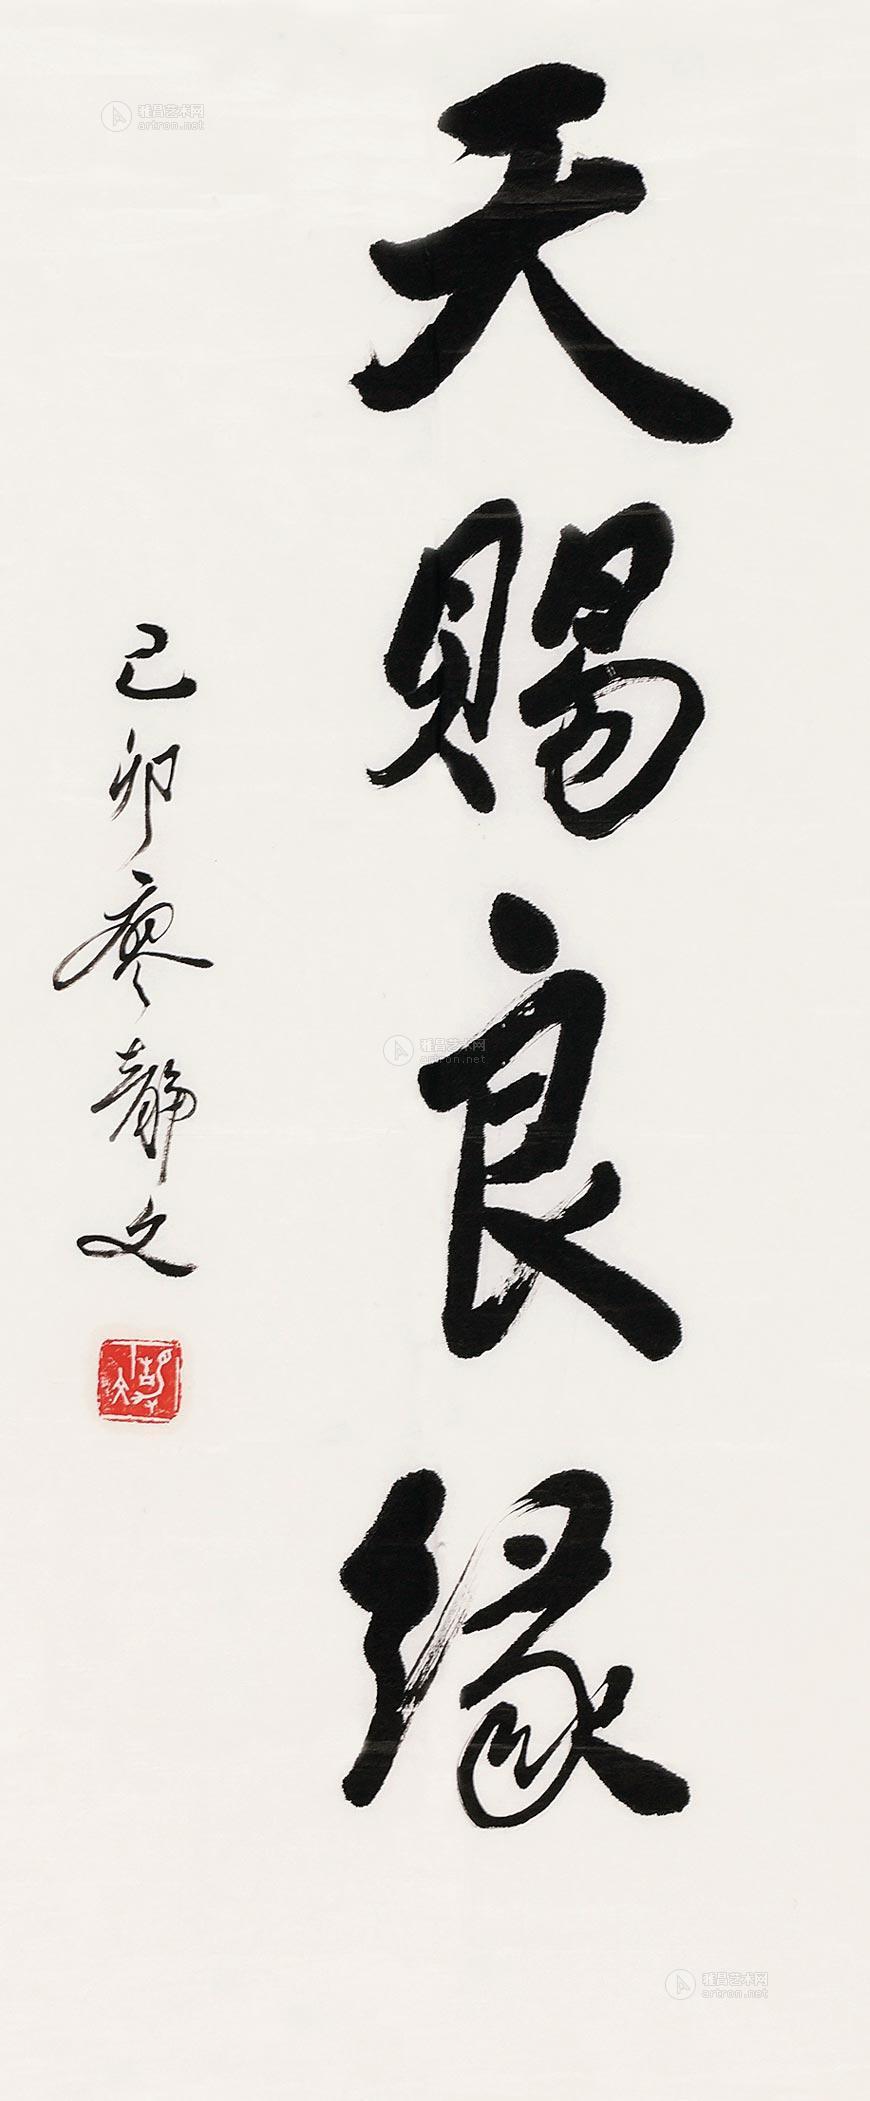 天赐良缘
己卯廖静文
雅昌艺术网
artron.net
雅昌艺术网
artron.net
雅昌艺术网
artron.net